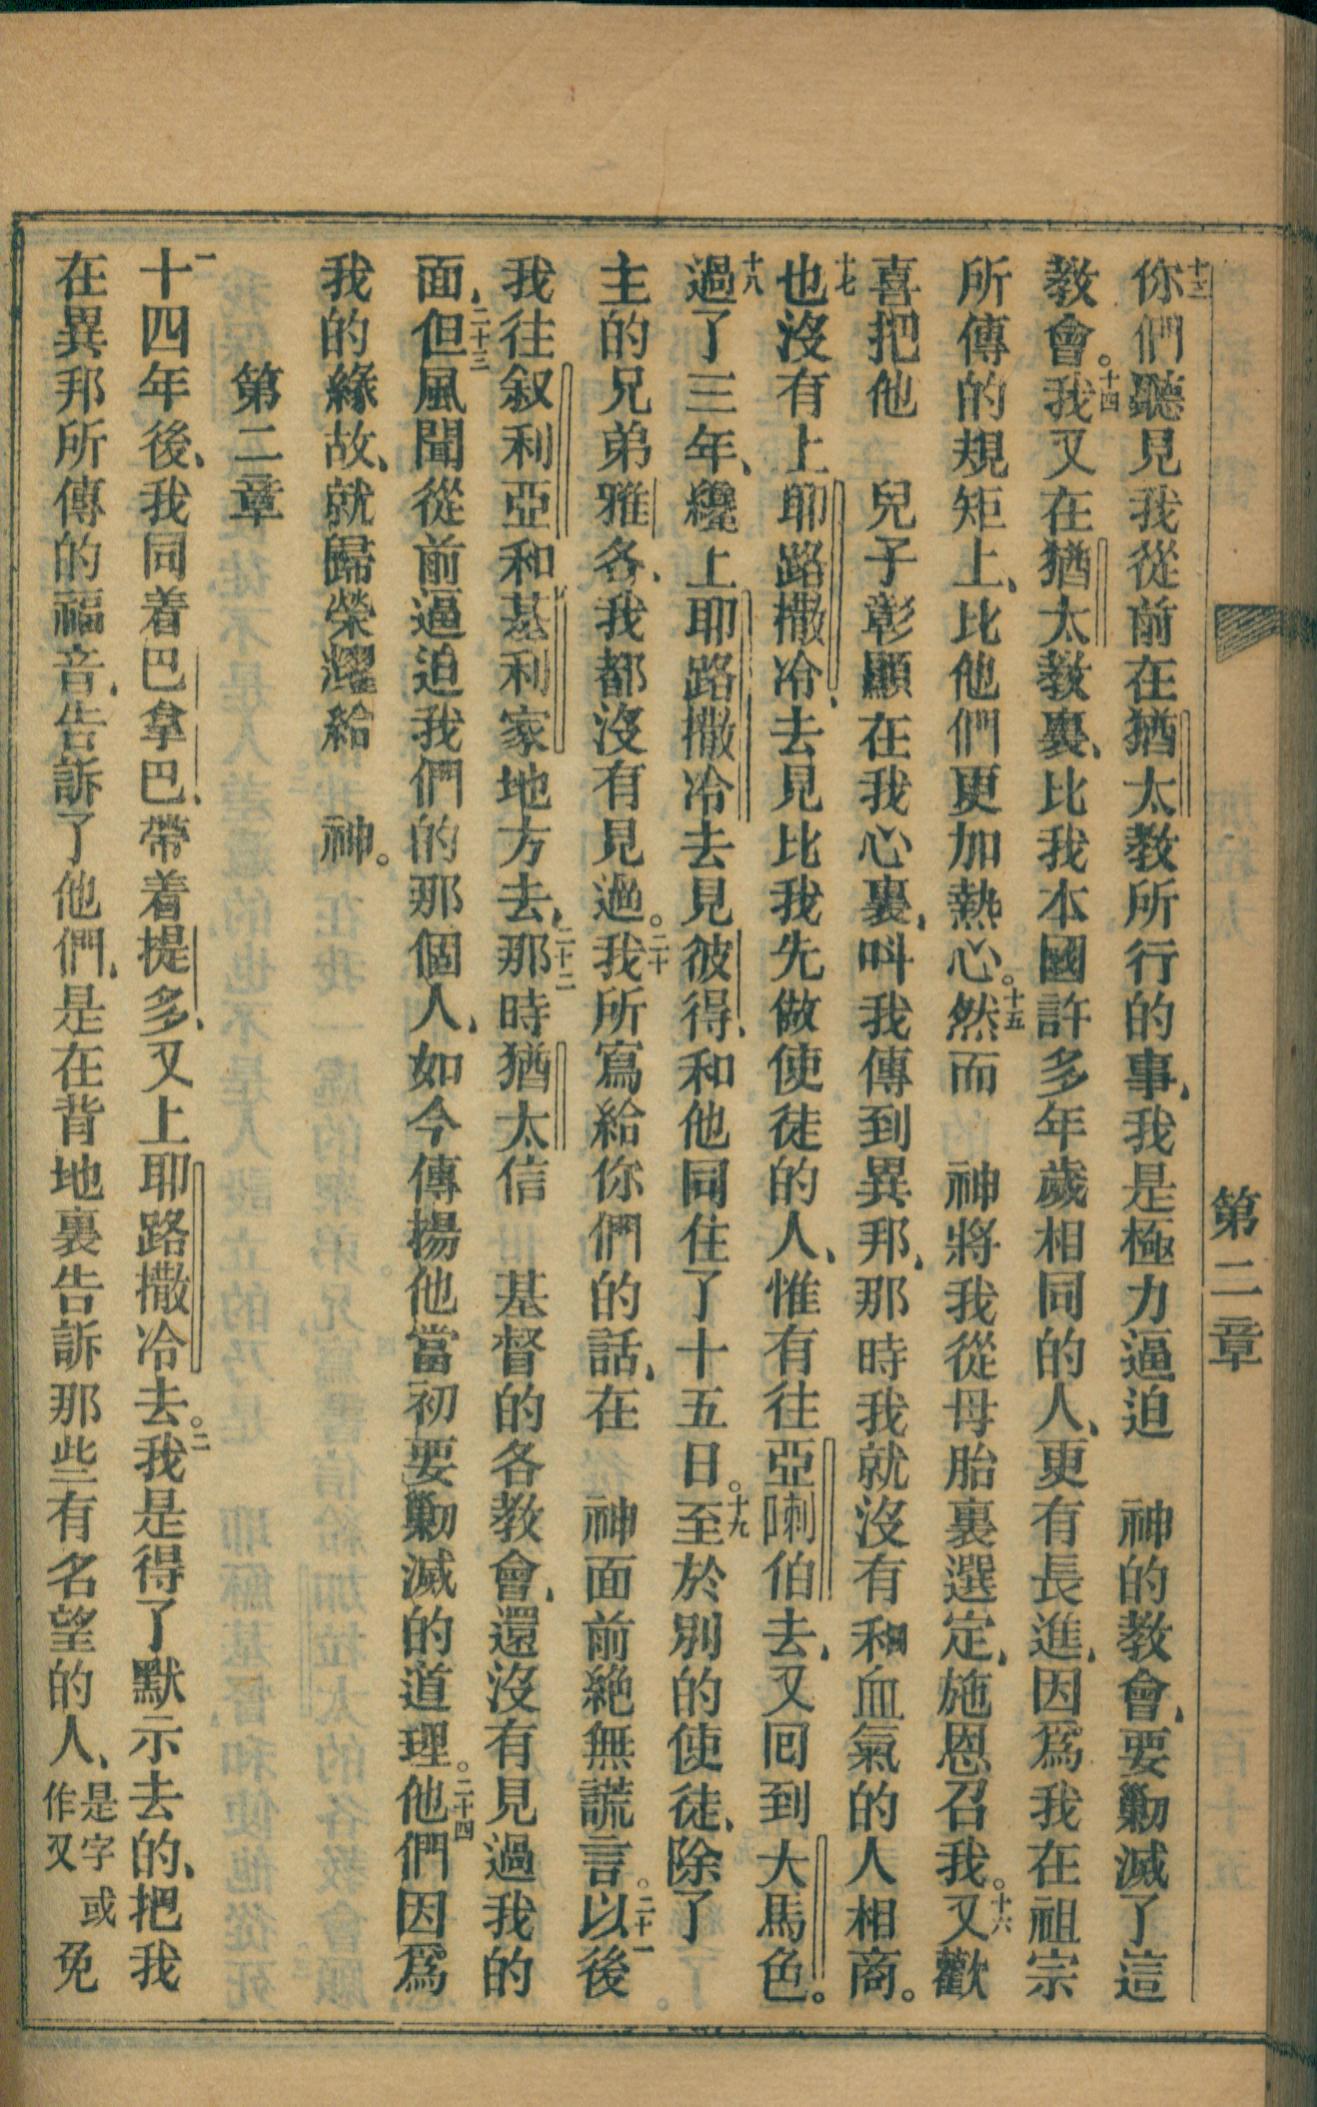 第二章
十三你們聽見我從前在猶太教所行的事、我是極力逼迫　神的教會、要勦滅了這
教會。十四我又在猶太教裏、比我本國許多年歲相同的人、更有長進、因爲我在祖宗
所傳的規矩上、比他們更加熱心。十五然而　神將我從母胎裏選定、施恩召我。十六又歡
喜把他　兒子彰顯在我心裏、呌我傳到異邦、那時我就沒有和屬血氣的人相商。
十七也沒有上耶路撒冷、去見比我先做使徒的人、惟有往亞喇伯去、又回到大馬色。
十八過了三年、纔上耶路撒冷去見彼得、和他同住了十五日。十九至於別的使徒、除了
主的兄弟雅各、我都沒有見過。二十我所寫給你們的話、在　神面前絶無謊言。二十一以後
我往叙利亞和基利家地方去、二十二那時猶太信　基督的各教會、還沒有見過我的
面、二十三但風聞從前逼迫我們的那個人、如今傳揚他當初要勦滅的道理。二十四他們因爲
我的緣故、就歸榮耀給　神。
第二章
一十四年後、我同着巴拿巴、帶着提多、又上耶路撒冷去。二我是得了默示去的、把我
在異邦所傳的福音、告訴了他們、是在背地裏告訴那些有名望的人、是字或作又免